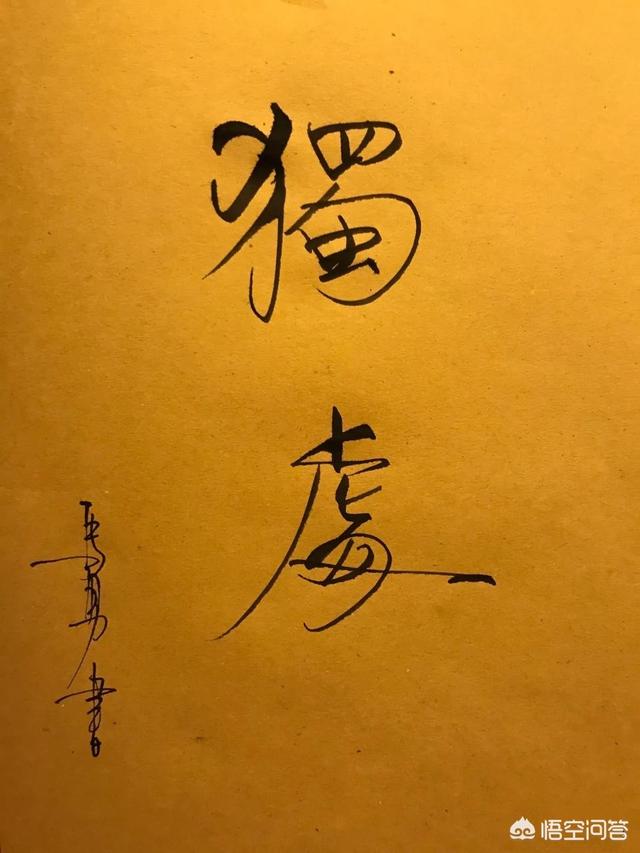 獨處
勇書
悟空问答